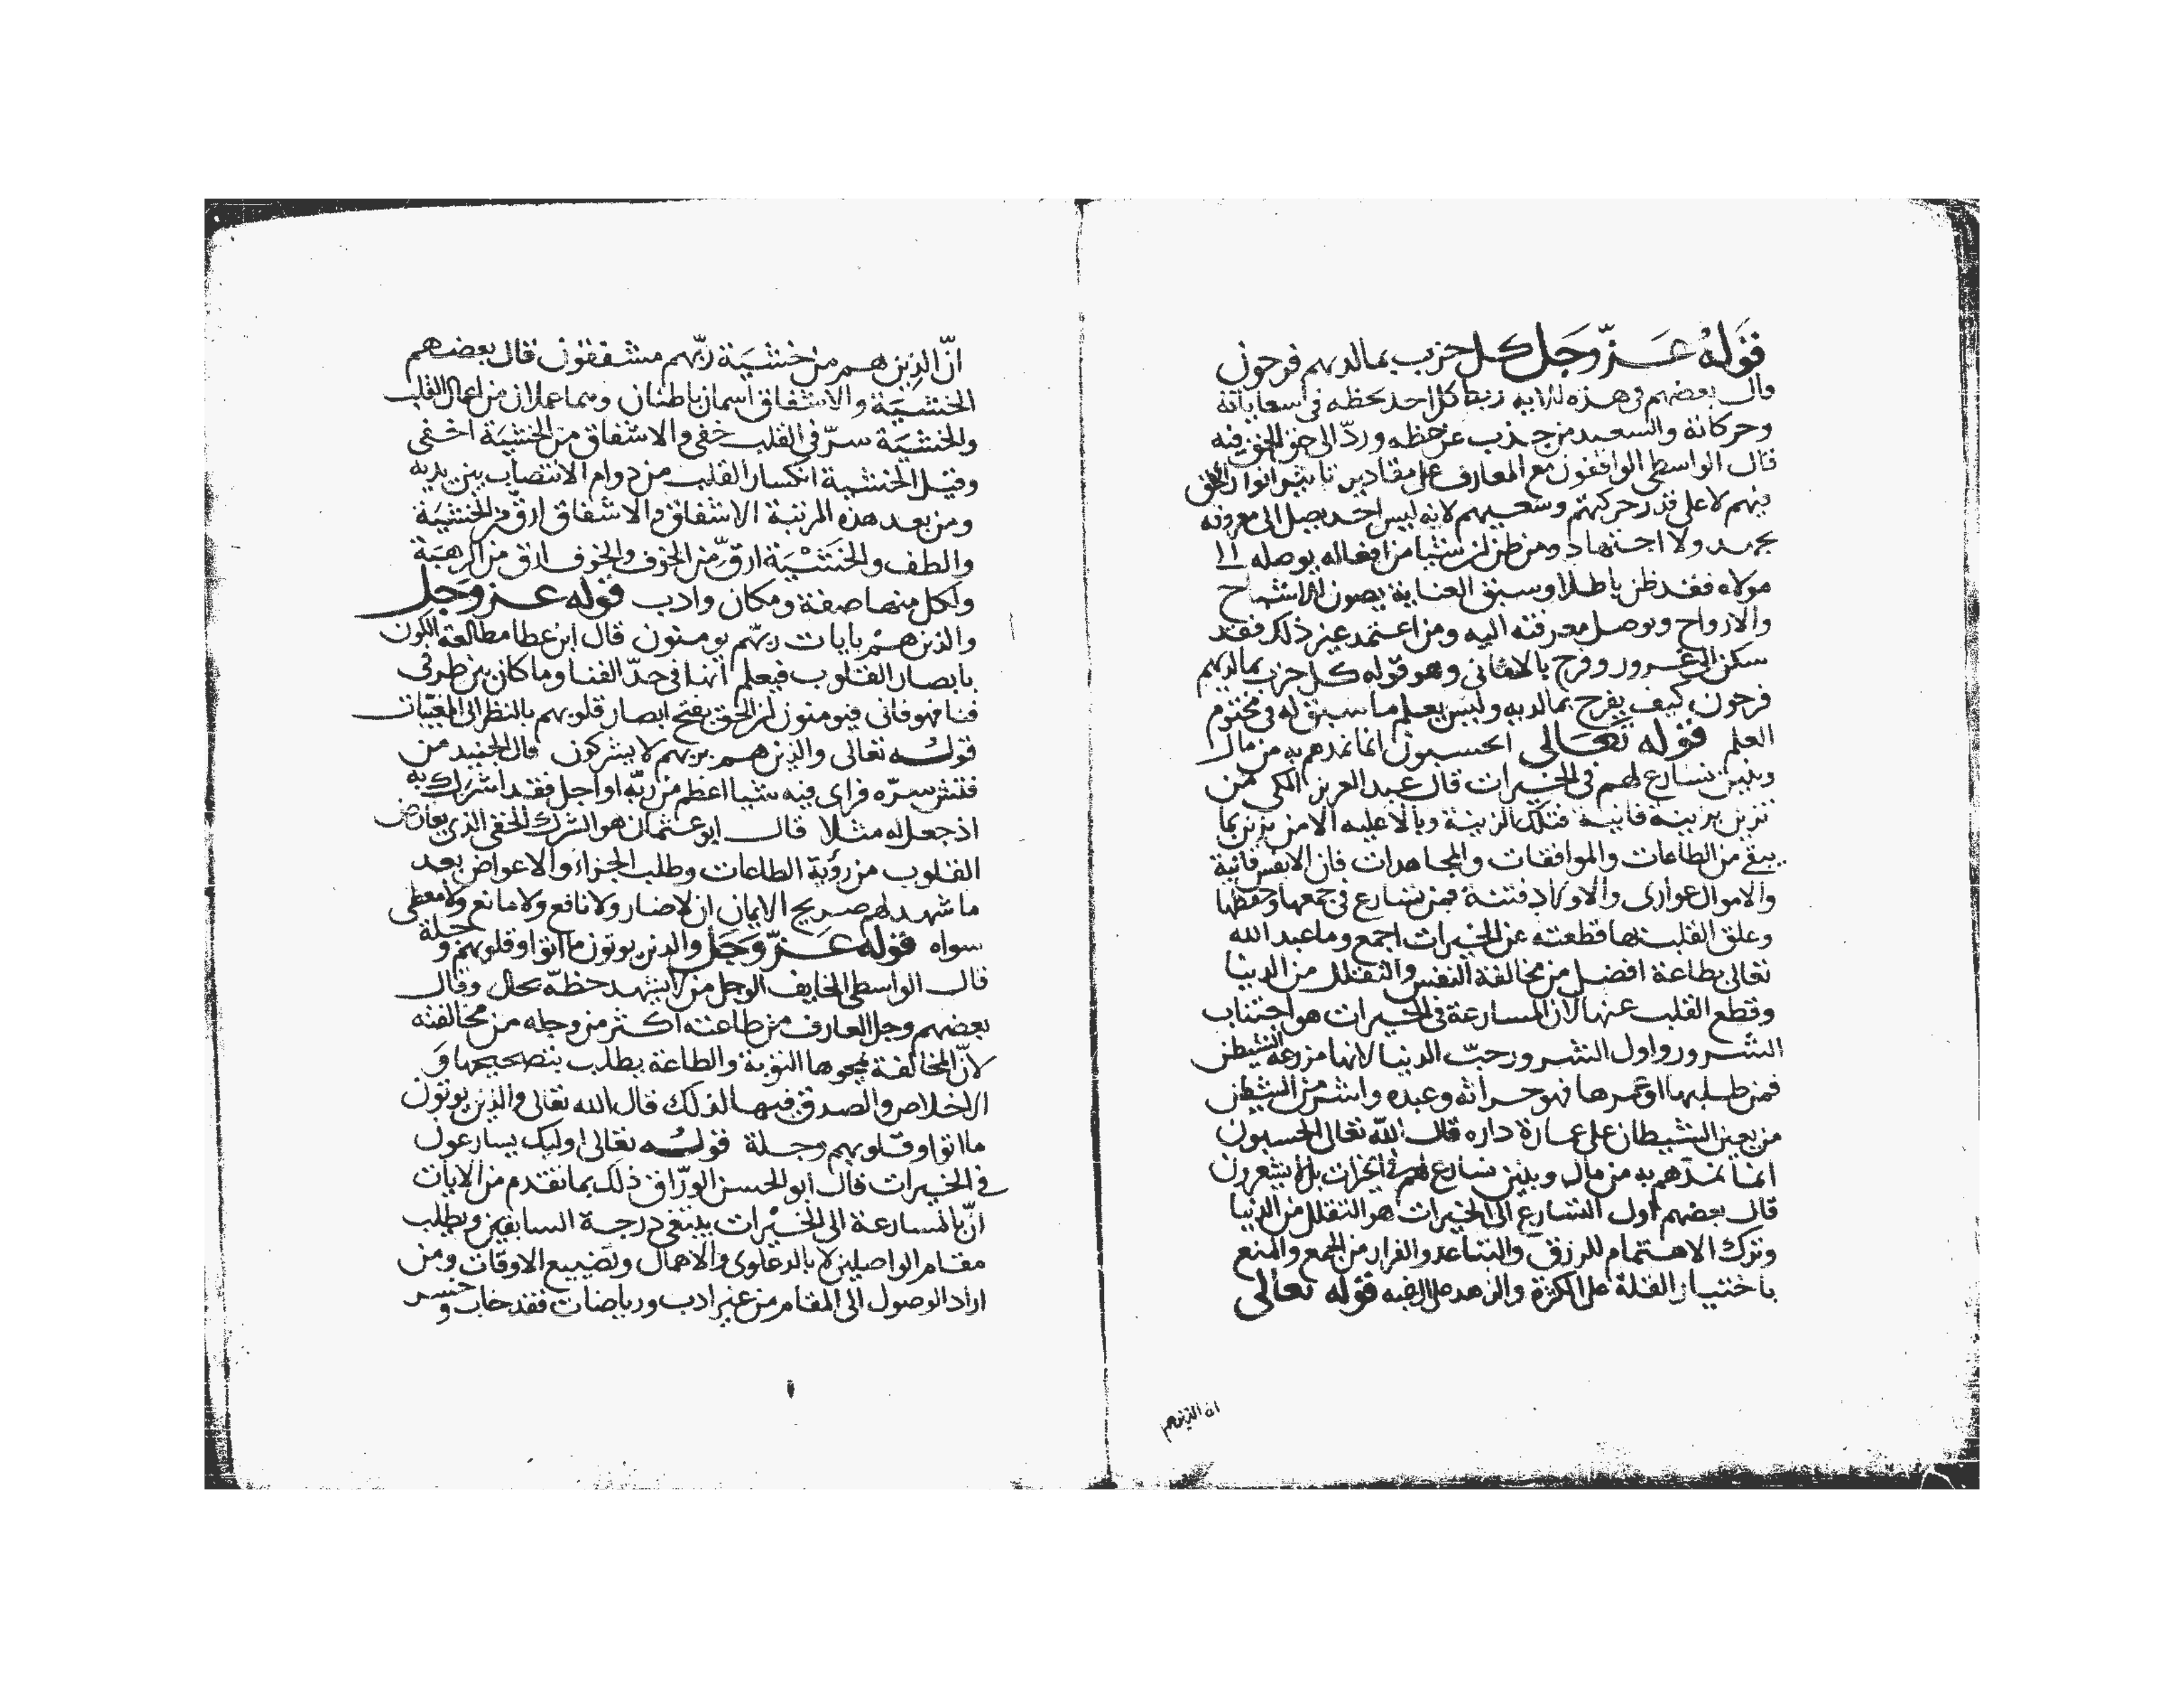 قوله عز وجل كل حزب بما لديهم فرحون
قال بعضهم في هذه الاية ربط كل احد بحظه في اسعاياته
وحركاته والسعيد من جذب عن حظه ورد الى حق الحق فيه
قال الواسطي الواقفون مع المعارف على مقادير تاثير انوار الحق
فيهم لا على قدر حركتهم وسعيهم لانه ليس احد يصل الى معرفته
بجهد ولا اجتهاد ومن ظن ان شيا من افعاله يوصله الى
مولاه فقد ظن باطلا وسبق العناية يصون الاشباح
والارواح ويوصل معرفته اليه ومن اعتمد غير ذلك فقد
سكن الى غرور وفرح بالاماني وهو قوله كل حزب بما لديهم
فرحون كيف يفرح بما لديه وليس يعلم ما سبق له في مختوم
العلم قوله تعالى ايحسبون انما نمدهم به من مال
وبنين نسارع لهم في الخيرات قال عبد العزيز المكي من
تزين بزينة فانية فتلك الزينة وبالا عليه الا من تزين بما
يبقى من الطاعات والموافقات والمجاهدات فان الانفس فانية
والاموال عواري والاولاد فتنة فمن تسارع في جمعها وحفظها
وعلق القلب بها قطعته عن الخيرات اجمع وما عبد الله
تعالى بطاعة افضل من مخالفة النفس والتقلل من الدنيا
وقطع القلب عنها لان المسارعة في الخيرات هو اجتناب
الشرور واول الشرور حب الدنيا لانها مزرعة الشيطن
فمن طلبها او عمرها فهو حراثه وعبده واشر من الشيطن
من يعين الشيطان على عمارة داره قال الله تعالى ايحسبون
انما نمدهم به من مال وبنين نسارع لهم في الخيرات بل لا يشعرون
قال بعضهم اول التسارع الى الخيرات هو التقلل من الدنيا
وترك الاهتمام للرزق والتباعد والفرار من الجمع والمنع
باختيار القلة على الكثرة والزهد على الرغبة قوله تعالى
ان الذين هم
انّ الذين هم من خشية ربّهم مشفقون قال بعضهم
الخشية والاشفاق اسمان باطنان وهما عملان من اعمال القلب
والخشية سرّ في القلب خفي والاشفاق من الخشية اخفى
وقيل الخشية انكسار القلب من دوام الانتصاب بين يديه
ومن بعد هذه المرتبة الاشفاق والاشفاق ارقّ من الخشية
والطف والخشية ارقّ من الخوف والخوف ارق من الرهبة
ولكل منها صفة ومكان وادب قوله عز وجل
والذين هم بايات ربّهم يومنون قال ابن عطا مطالعة الكون
بابصار القلوب فيعلم انها في حدّ الفنا وما كان بين طرفي
فنا فهو فاني فيومنون ان الحق يفتح ابصار قلوبهم بالنظر الى المغيبات
قوله تعالى والذين هم بربهم لا يشركون قال الجنيد من
فتش سرّه فراى فيه شيا اعظم من ربّه او اجل فقد اشرك به
اذ جعل له مثلا قال ابو عثمان هو الشرك الخفي الذي يعارض
القلوب من رؤية الطاعات وطلب الجزاء والاعواض بعد
ما شهد لهم صريح الايمان ان لا ضار ولا نافع ولا مانع ولا معطي
سواه قوله عزّ وجل والذين يوتون ما اتوا وقلوبهم وجلة
قال الواسطي الخايف الوجل من لا يشهد حظّه بحال وقال
بعضهم وجل العارف من طاعته اكثر من وجله من مخالفته
لانّ المخالفة تمحوها التوبة والطاعة يطلب بتصحيحها و
الاخلاص والصدق فيها لذلك قال الله تعالى والذين يوتون
ما اتوا وقلوبهم وجلة قوله تعالى اوليك يسارعون
في الخيرات قال ابو الحسن الورّاق ذلك بما تقدم من الايات
انّ بالمسارعة الى الخيرات يبتغى درجة السابقين ويطلب
مقام الواصلين لا بالدعاوى والاهمال وتضييع الاوقات ومن
اراد الوصول الى المقام من غير ادب ورياضات فقد خاب وخسر